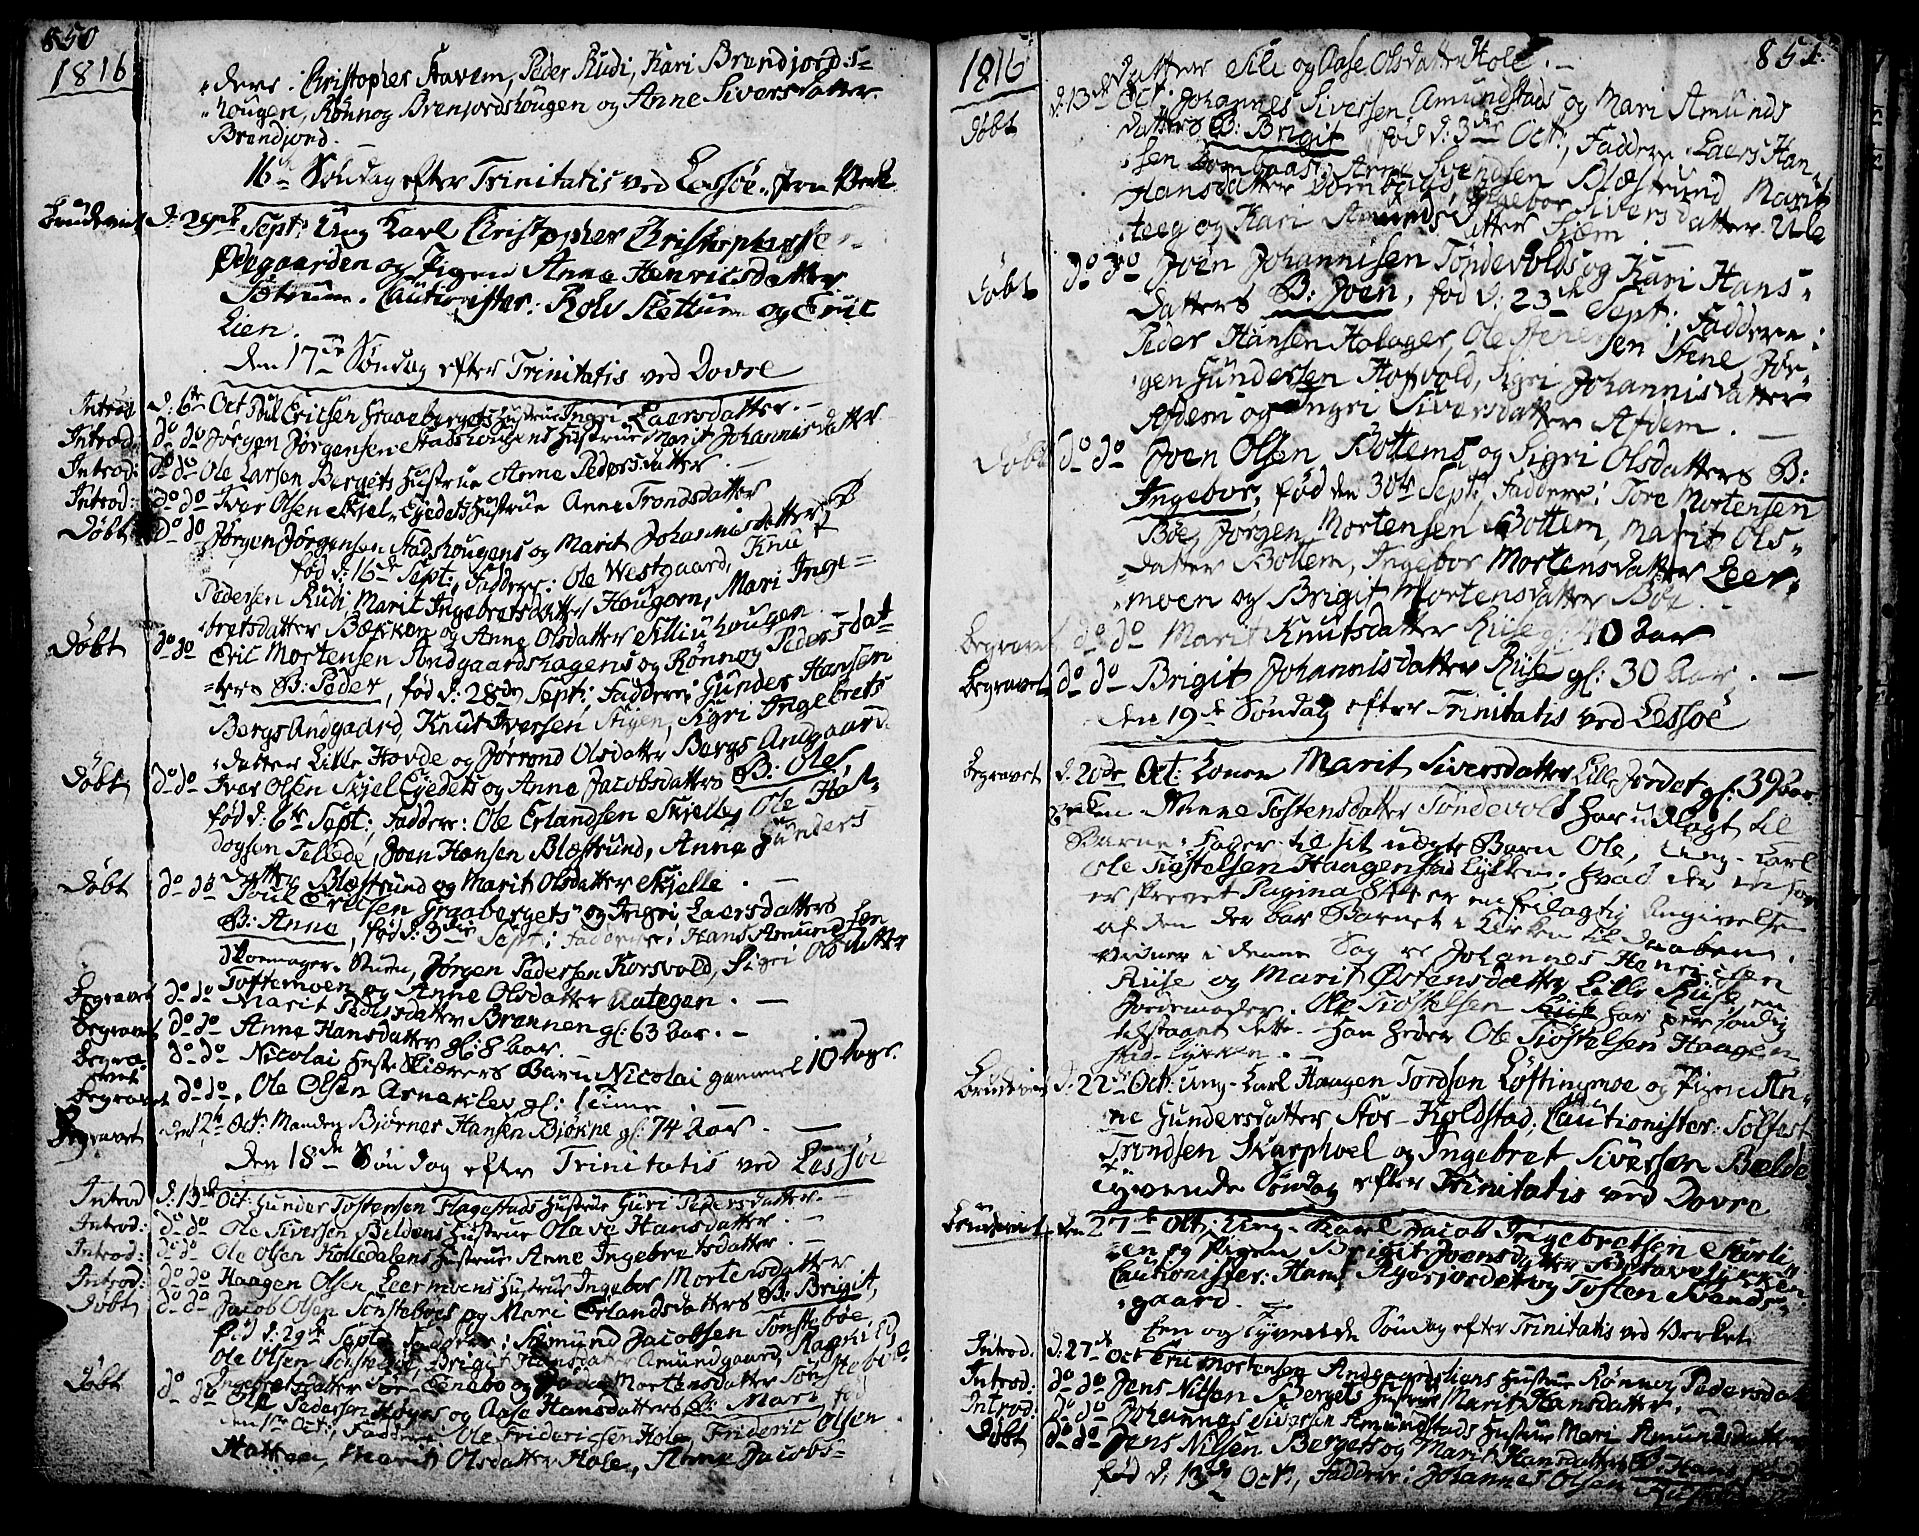 850
1816
"ders: Christopher Stavem, Peder Rudi, Kari Brendjords-
"hougen, Rønnog Brenjordshougen og Anne Siversdatter
Brendjord.
16de Søndag efter Trinitatis ved Lessøe
Brudeviet d: 29de Sept: Ung Karl Christopher Christophersen
Ødegaarden og Pigen Anne Henricsdatter
Sætrum. Cautionister: Rolv Slettum og Eric
Lien.
Den 17de Søndag efter Trinitatis ved Dovre
Introd: d: 6te Oct Poul Ericsen Graabergets Hustrue Ingri Laarsdatter. -
Introd: do do Jørgen Jørgensen Stadshougens Hustrue Marit Johannisdatter
Introd: do do Ole Larsen Bergets Hustrue Anne Pedersdatter. -
Introd: do do Iver Olsen Skjel-Eyedets Hustrue Anne Trondsdatter
Døbt do do Jørgen Jørgensen Stadshougens og Marit Johannisdatters B
fød d: 16de Sept: Faddere: Ole Westgaard, Knut
Pedersen Rudi, Marit Ingebretsdatter Hougen, Mari Inge=
bretsdatter Bækken og Anne Olsdatter Killiuhougen
Døbt do do Eric Mortensen Andgaardshagens og Rønnog Pedersdat=
"ters B: Peder, fød d: 28de Sept: Faddere: Gunder Hansen
Bergs Andgaard, Knut Iversen Stigen, Sigri Ingebrets
"datter Lille Hovde og Jørrond Olsdatter Bergs Andgaard.
Døbt do do Iver Olsen Skjel Eyedets og Anne Jacobsdatters B: Ole,
fød d: 6te Sept: Faddere: Ole Erlandsen Skjelle, Ole Hal-
dogsen Tellede, Joen Hansen Blæstrund, Anne Gunders
datter Blæstrund og Marit Olsdatter Skjelle. -
Døbt do do Poul Ericsen Graabergets og Ingri Laersdatters
B: Anne, fød d: 3die Sept: Faddere: Hans Amundsen
Skomager, Jørgen Pedersen Korsvold, Sigri Olsdatter
Toftemoen og Anne Olsdatter Aategen. -
Begravet do do Marit Pedersdatter Brennen gl: 63 Aar. -
Begravet do do Anne Hansdatter gl: 8 Aar.
Begra=
vet do do Nicolai Hesteskiærers Barn Nicolai gammel 10 Dage.
Begravet do do, Ole Olsen Arneklev gl: 1 Time
Begravet den 12te Oct: Manden Bjørner Hansen Bjøkne gl: 74 Aar. -
Den 18de Søndag efter Trinitatis ved Lessøe
Introd d: 13de Oct: Gunder Tostensen Flagestads Hustrue Guri Pedersdatter. -
Introd: do do Ole Siversen Beldens Hustrue Olave Hansdatter. -
Introd: do do Ole Olsen Kolledalens Hustrue Anne Ingebretsdatter. -
Introd: do do Haagen Olsen Leermoens Hustrue Ingebor Mortensdatter
Døbt do do Jacob Olsen Tonsteboes og Mari Erlandsdatters B: Brigit,
fød d: 29de Sept: Faddere: Sæmund Jacobsen Tonstebøe
Ole Olsen Brigit Hansdatter Amundgaard, Ragnild
Ingebretsdatter Enebo og Mortensdatter Tonstebøe
Døbt do do Ole Pedersen Høyes og Aase Hansdatters B: Mari fød
den 1ste Oct:, Faddere: Ole Fridericsen Hole, Frideric Olsen
Hattren, Marit Olsdatter Hole, Anne Jacobs-
1816 851
datter Sili og Aase Olsdatter Hole. -
Døbt d: 13de Oct. Johannes Siversen Amundstads og Mari Amunds
datters B: Brigit, fød d: 3die Oct:, Faddere: Laers Han
"sen Dombaas, Arne Svendsen Blæstrund, Marit
Hansdatter Dombaas, Ingebor Siversdatter Ule
"teeg og Kari Amundsdatter
Døbt do do Joen Johannisen Tøndevolds og Kari Hans-
datters B: Joen, fød d: 23de Sept: Faddere:
Peder Hansen Holager, Ole Stenersen Stene, Jør-
"gen Gundersen Hofvold, Sigri Johannisdatter
Afdem og Ingri Siversdatter Afdem. -
Døbt do do Joen Olsen Bottems og Sigri Olsdatters B:
Ingebor, fød den 30te Sept:, Faddere: Tore Mortensen
Böe, Jørgen Mortensen Bottem, Marit Ols-
"datter Bottem, Ingebor Mortensdatter Leer-
"moen og Brigit Mortensdatter Böe.
Begravet do do Marit Knutsdatter Riise gl: 10 Aar
Begravet do do Brigit Johannisdatter Riise gl: 30 Aar. -
Den 19de Søndag efter Trinitatis ved Lessøe
Begravet d: 20de Oct: Konen Marit Siversdatter Lille Jordet gl: 39 Aar
Anne Tostensdatter Tøndevold har udlagt til
Barne-Fader til sit uægte Barn Ole, Ung-Karl
Ole Siøstelsen Haagenstad Lykken; hvad der er for
er skrevet Pagina 844 er en feilagtig Angivelse
af den der bar Barnet i Kirken til Daaben.
Vidner i denne Sag er Johannes Henricsen
Riise og Marit Østensdatter Lille Riise en
Jordemoder. Ole Siøstelsen har personlig
tilstaaet dette. Han heder Ole Siøstelsen Haagen
stad-Lykken. -
Brudeviet d: 22de Oct: Ung-Karl Haagen Tordsen Löftingmoe og Pigen An-
ne Gundersdatter Stor-Koldstad, Cautionister: Tolfest
Trondsen Skarphoel og Ingebret Siversen Belde
Tyvende Søndag efter Trinitatis ved Dovre
Brudeviet den 27de Oct: Ung-Karl Jacob Ingebretsen
en og Pigen Brigit Joensdatter
Cautionister: Hans og Tosten Svends-
"gaard.
Een og Tyvende Søndag efter Trinitatis ved Verket
Introd: d: 27de Oct Eric Mortensen Andgaardsliens Hustrue Rønnog Pedersdatt
Introd: do do Jens Nilsen Bergets Hustrue Marit Hansdatter. -
Introd: do do Johannes Siversen Amundstads Hustrue Mari Amundsdatter
Døbt do do Jens Nilsen Bergets og Marit Hansdatters B: Hans, fød
fød d: 13de Oct:, Faddere: Johannes Olsen